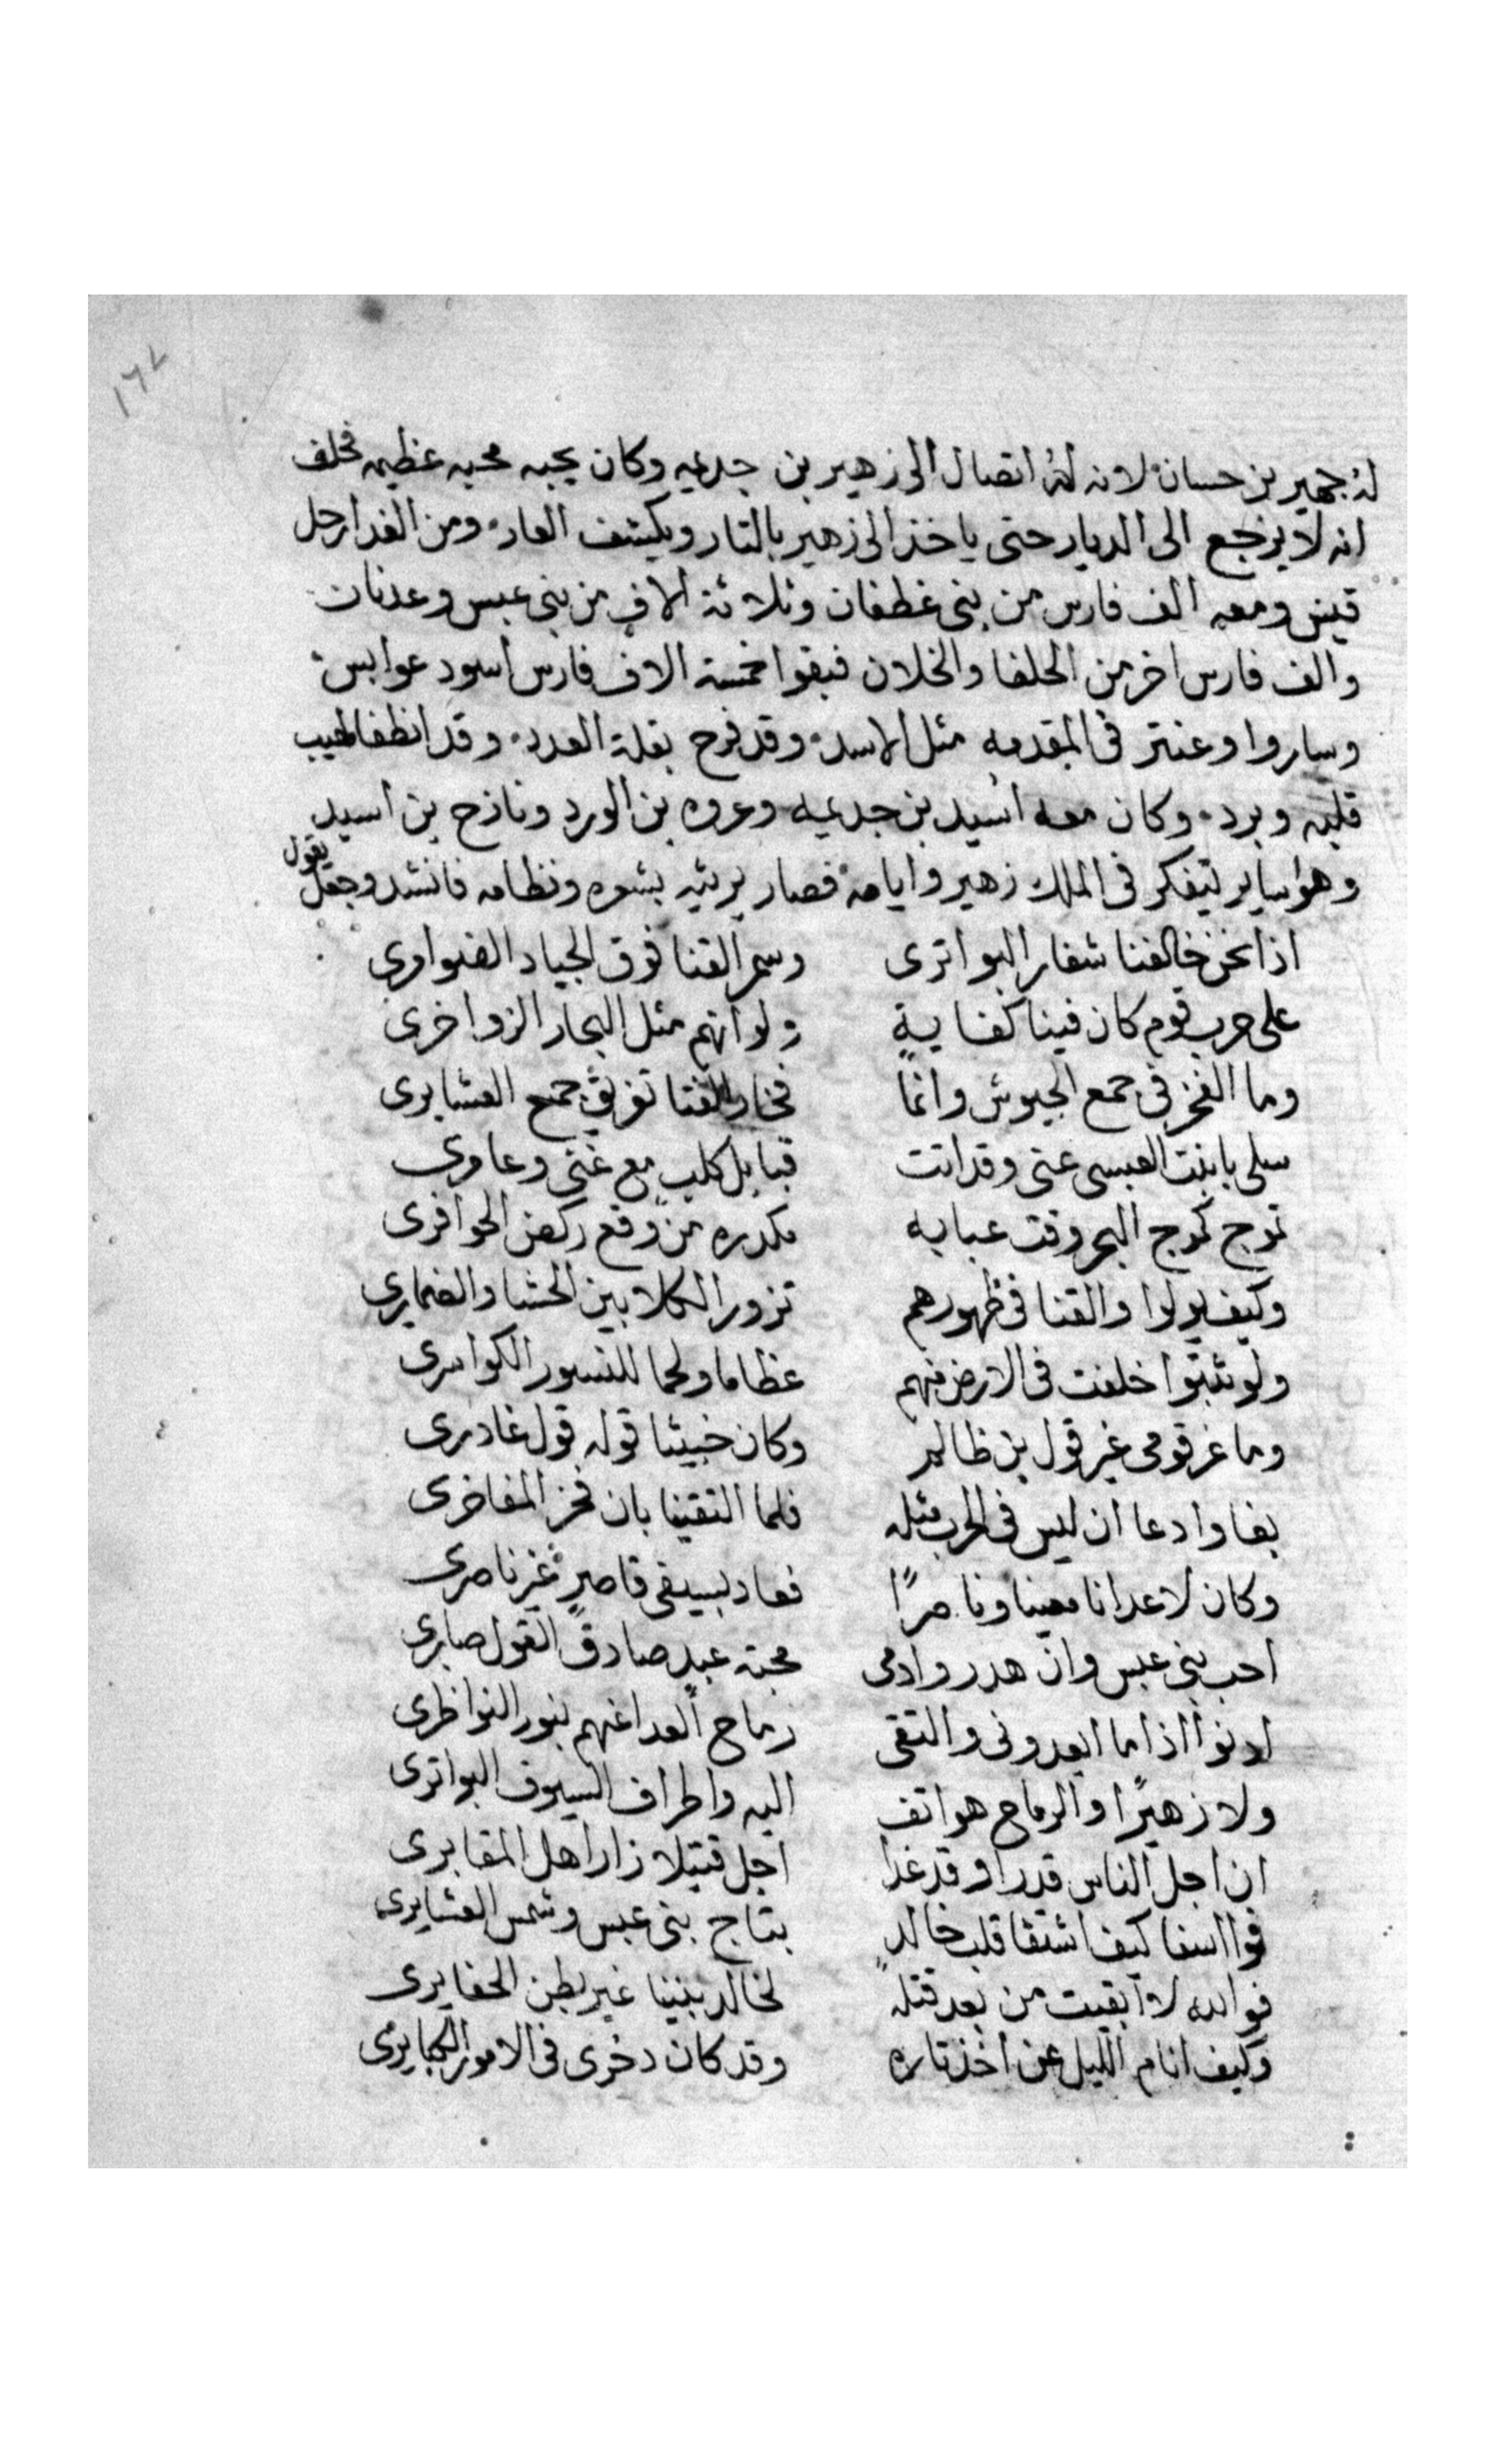 ١٦٧
له جمهير بن حسان لانه له اتصال الى زهير بن جديمه وكان يحبه محبه عظيمه فحلف
انه لا يرجع الى الديار حتى ياخذ الى زهير بالتار ويكشف العار ومن الغد ارحل
قيس ومعه الف فارس من بنى غطفان وثلاثة الاف من بنى عبس وعدنان
والف فارس اخر من الحلفا والخلان فبقوا خمسة الاف فارس اسود عوابس
وساروا وعنتر فى المقدمه مثل الاسد وقد فرح بقلة العدد وقد انطفا لهيب
قلبه وبرد وكان معه اسيد بن جديمه وعروه بن الورد ونازح بن اسيد
وهو ساير يتفكر فى الملك زهير وايامه فصار يرثيه بشعره ونظامه فانشد وجعل يقول
اذا نحن خالفنا شفار البواترى وسمر القنا فوق الجياد الضوامرى
على حرب قوم كان فينا كفاية ولو انهم مثل البحار الزواخرى
وما الفخر فى جمع الجيوش وانما فخار الفتا تفريق جمع العشايرى
سلى يا بنت العبسى عنى وقد اتت قبايل كلب مع غنى وعامرى
تموج كموج البحر وقت عبابه مكدره من وقع ركض الحوافرى
وكيف يولوا والقنا فى ظهورهم تزور الكلا بين الحشا والضمايرى
ولو ثبتوا خلفت فى الارض منهم عظاما ولحما للنسور الكواسرى
وما غر قومى غير قول بن ظالم وكان خبيثا قوله قول غادرى
بغا وادعا ان ليس فى الحرب مثله فلما التقينا بان فخر المفاخرى
وكان لاعدانا معينا وناصرًا فعاد بسيفى قاصرٍ غير ناصرى
احب بنى عبس وان هدروا دمى محبة عبدٍ صادق القول صابرى
ادنوا اذا ما ابعدونى والتقى رماح العدا عنهم بنور النواظرى
ولا زهيرًا والرماح هواتف اليه واطراف السيوف البواترى
ان اجل الناس قدرا وقد غدا اجل قتيلا زار اهل المقابرى
فوا اسفا كيف اشتفا قلب خالدٍ بتاج بنى عبس وشمس العشايرى
فوالله لا ابقيت من بعد قتله لخالد بنينا غير بطن الحفايرى
وكيف انام الليل عن اخذ تاره وقد كان دخرى فى الامور الكبايرى